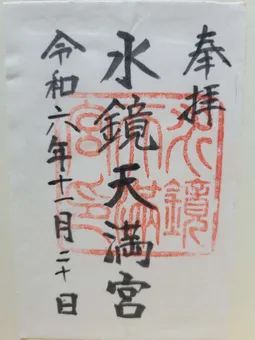 奉拝
水鏡天満宮
令和六年十一月二十日
水鏡天満宮印